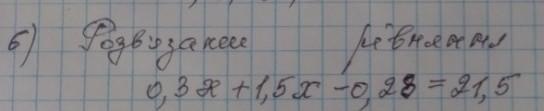 б) Розв'язання рівняння
0,3х + 1,5х - 0,28 = 21,5